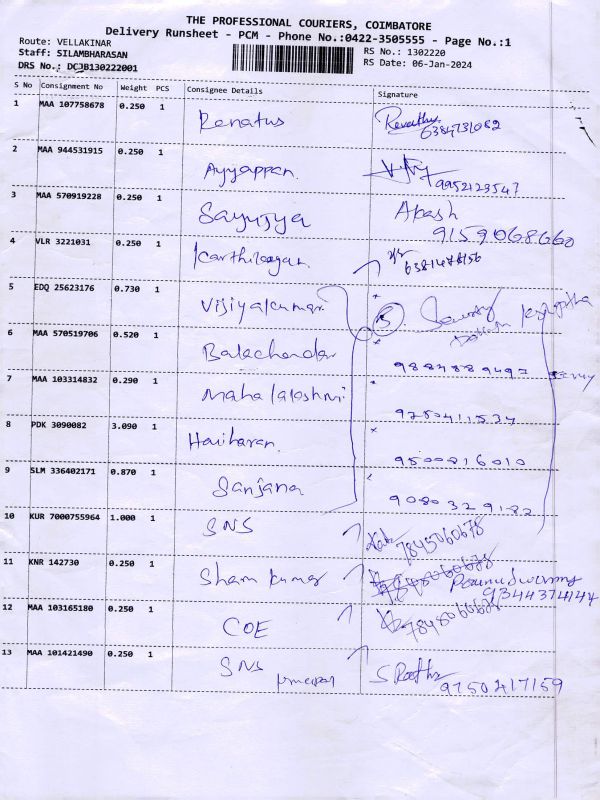 THE PROFESSIONAL COURIERS, COIMBATORE
Delivery Runsheet - PCM - Phone No.:0422-3505555 - Page No.:1
Route: VELLAKINAR
RS No.: 1302220
Staff: SILAMBHARASAN
RS Date: 06-Jan-2024
DRS No.: DCJB130222001
S No Consignment No Weight PCS Consignee Details Signature
1 MAA 107758678 0.250 1 Renatus Revathy
6384731082
2 MAA 944531915 0.250 1 Ayyappan
9952123547
3 MAA 570919228 0.250 1 Sayujya Akash
9159068660
4 VLR 3221031 0.250 1 Karthikeyan
6381478156
5 EDQ 25623176 0.730 1 Vijiyakumar 5
6 MAA 570519706 0.520 1 Balachandar
9884889497
7 MAA 103314832 0.290 1 Mahalakshmi
9750411537
8 PDK 3090082 3.090 1 Hariharan
9500816010
9 SLM 336402171 0.870 1 Sanjana
9080329182
10 KUR 7000755964 1.000 1 SNS
7845060678
11 KNR 142730 0.250 1 Sham Kumar
9344374144
12 MAA 103165180 0.250 1 COE
7848060678
13 MAA 101421490 0.250 1 SNS
principal
9750417159